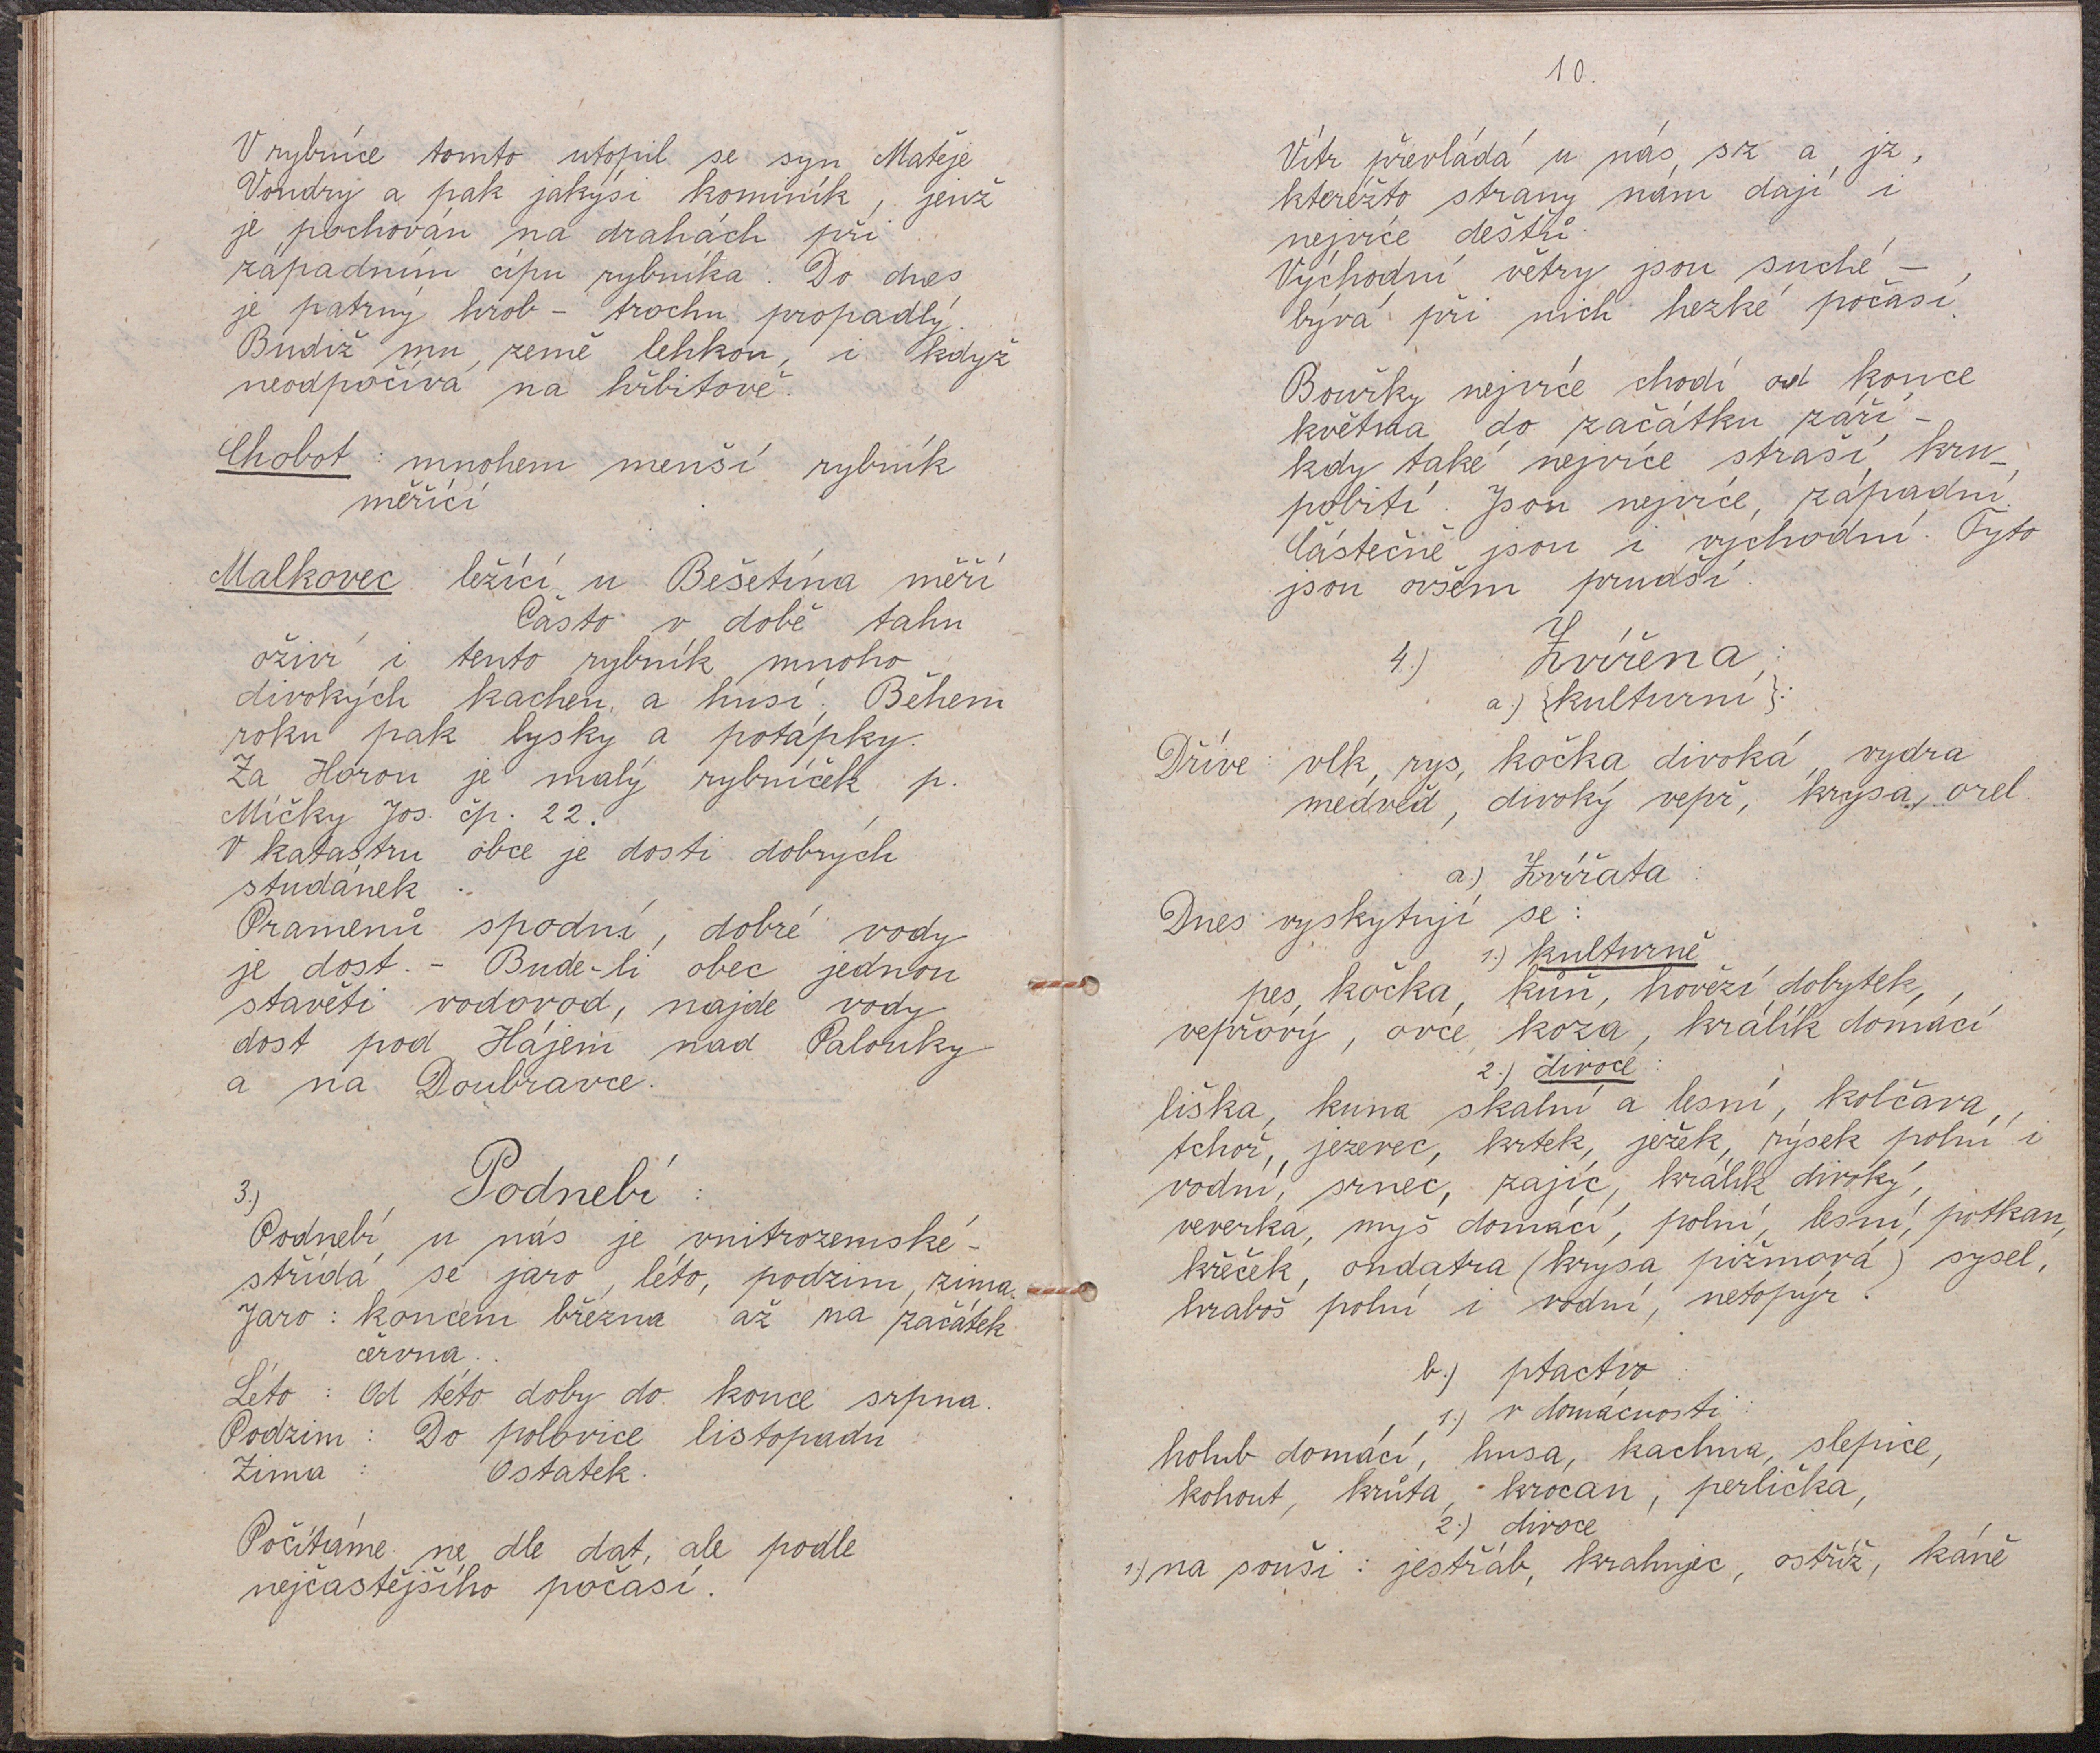 V rybníce tomto utopil se syn Matěje
Vondry a pak jakýsi kominík, jenž
je pochován na drahách při
západním cípu rybníka. Do dnes
je patrný hrob - trochu propadlý.
Budiž mu země lehkou, i když
neodpočívá na hřbitově.
Chobot : mnohem menší rybník
měřící
Malkovec ležící u Bešetína měří
Často v době tahu
oživí i tento rybník mnoho
divokých kachen a husí. Během
roku pak lysky a potápky.
Za Horou je malý rybníček p.
Míčky Jos. čp. 22.
V katastru obce je dosti dobrých
studánek.
Pramenů spodní, dobré vody
je dost. - Bude-li obec jednou
stavěti vodovod, najde vody
dost pod Hájem nad Palouky
a na Doubravce.
3.) Podnebí :
Podnebí u nás je vnitrozemské -
střídá se jaro, léto, podzim, zima.
Jaro : koncem března až na začátek
června.
Léto : Od této doby do konce srpna.
Podzim : Do polovice listopadu
Zima : Ostatek.
Počítáme ne dle dat, ale podle
nejčastějšího počasí.
10.
Vítr převládá u nás sz a jz,
kteréžto strany nám dají i
nejvíce dešťů.
Východní větry jsou suché -
bývá při nich hezké počasí.
Bouřky nejvíce chodí od konce
května do začátku září -
kdy také nejvíce straší kru-
pobití. Jsou nejvíce západní.
Částečně jsou i východní. Tyto
jsou ovšem prudší.
4.) Zvířena :
a.) {kulturní}:
Dříve : vlk, rys, kočka divoká, vydra
medvěd, divoký vepř, krysa, orel.
a.) Zvířata :
Dnes vyskytují se :
1.) kulturně
pes, kočka, kůň, hovězí dobytek,
vepřový, ovce, koza, králík domácí
2.) divoce :
liška, kuna skalní a lesní, kolčava,
tchoř, jezevec, krtek, ježek, rýsek polní i
vodní, srnec, zajíc, králík divoký,
veverka, myš domácí, polní, lesní, potkan,
křeček, ondatra (krysa pižmová) sysel,
hraboš polní i vodní, netopýr.
b.) ptactvo :
1.) v domácnosti :
holub domácí, husa, kachna, slepice,
kohout, krůta, krocan, perlička,
2.) divoce
1.) na souši : jestřáb, krahujec, ostříž, káně